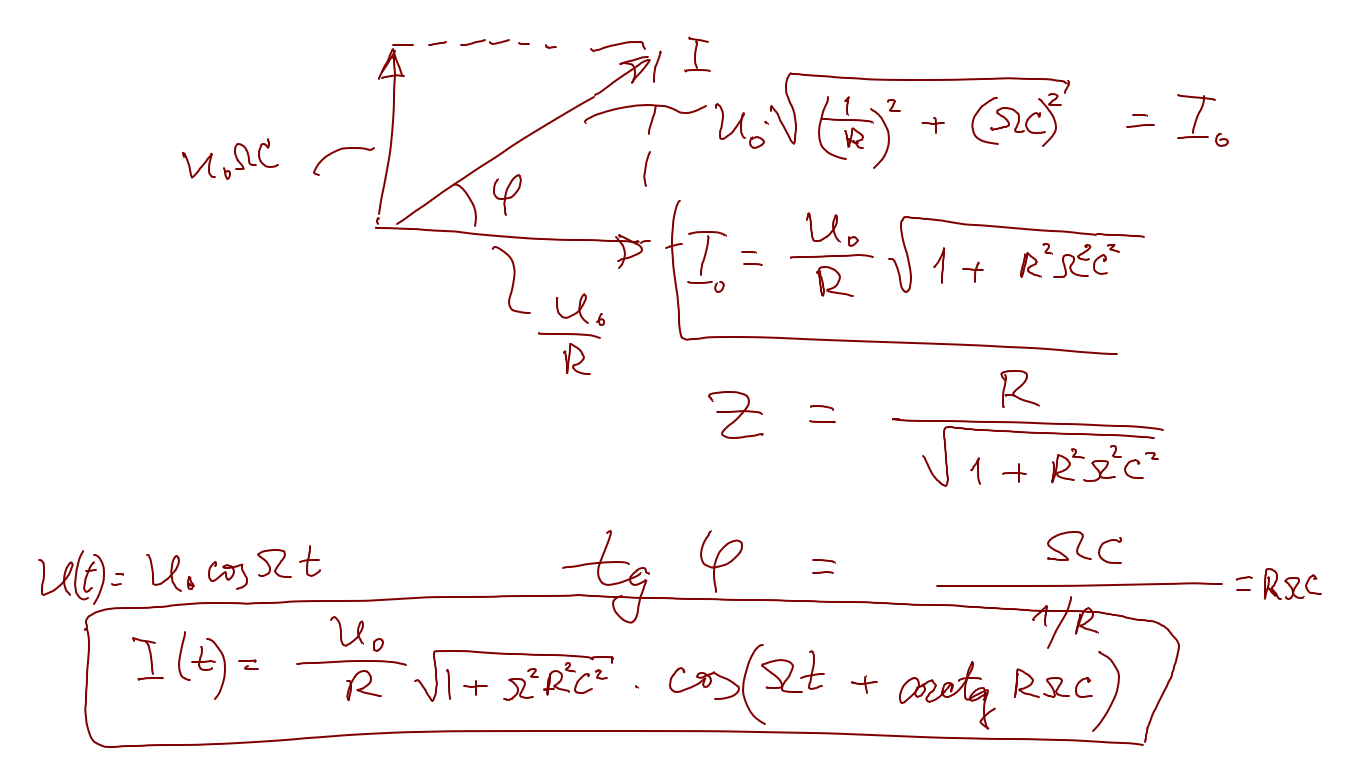 I
U₀ΩC
U₀·√((1/R)² + (ΩC)²) = I₀
φ
I₀ = U₀/R √(1 + R²Ω²C²)
U₀/R
Z = R/√(1 + R²Ω²C²)
U(t) = U₀ cos Ωt
tg φ = ΩC/(1/R) = RΩC
I(t) = U₀/R √(1 + Ω²R²C²) · cos(Ωt + arctg RΩC)